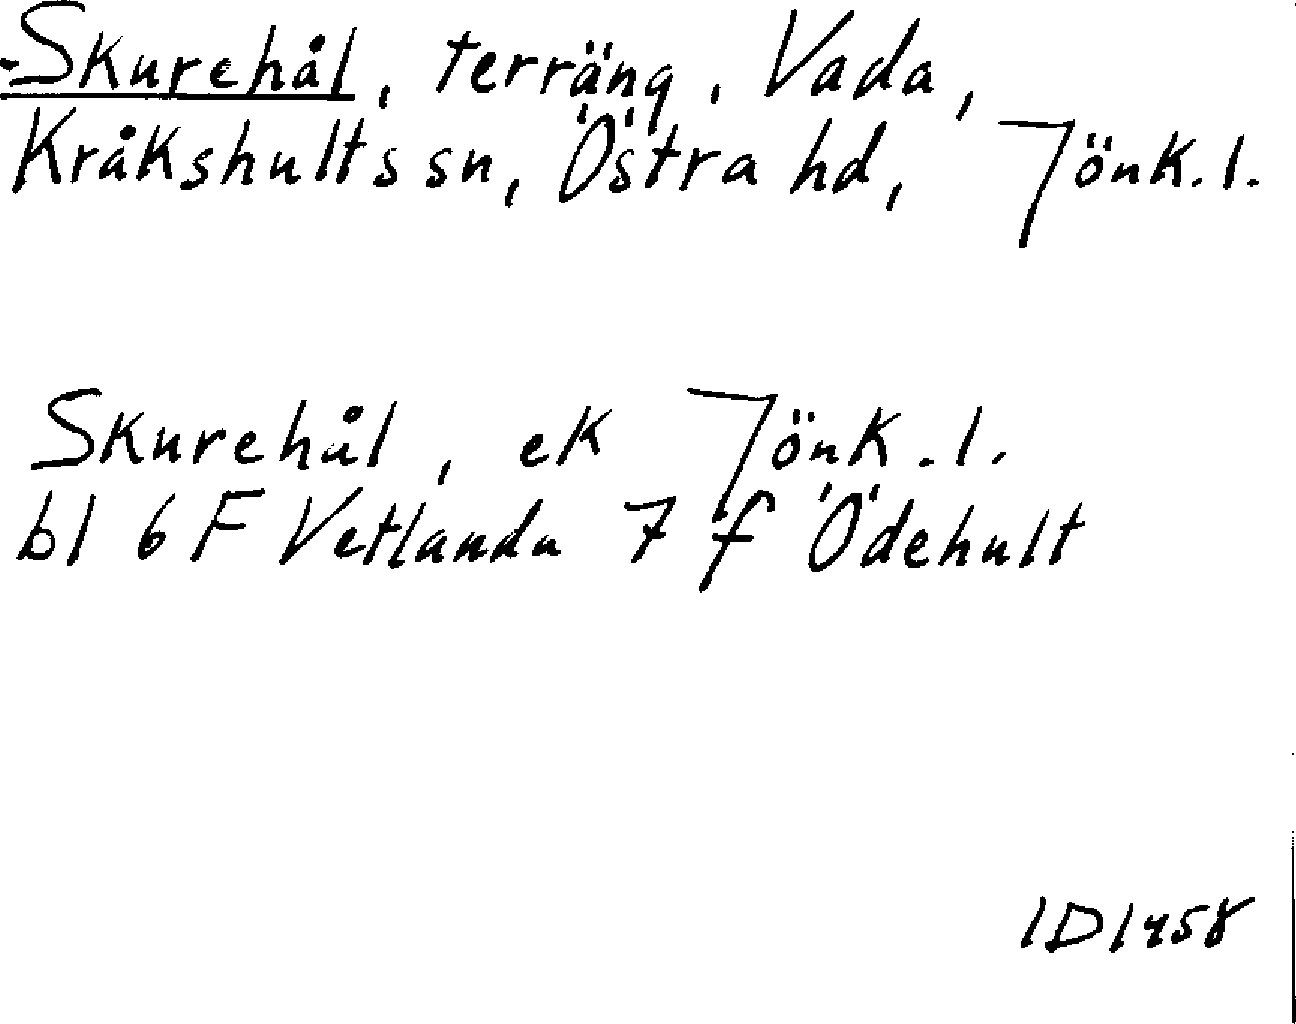 -Skurehål, terräng, Vada,
Kråkshults sn, Östra hd, Jönk.l.
Skurehål, ek Jönk.l.
bl 6 F Vetlanda 7 f Ödehult
ID1458